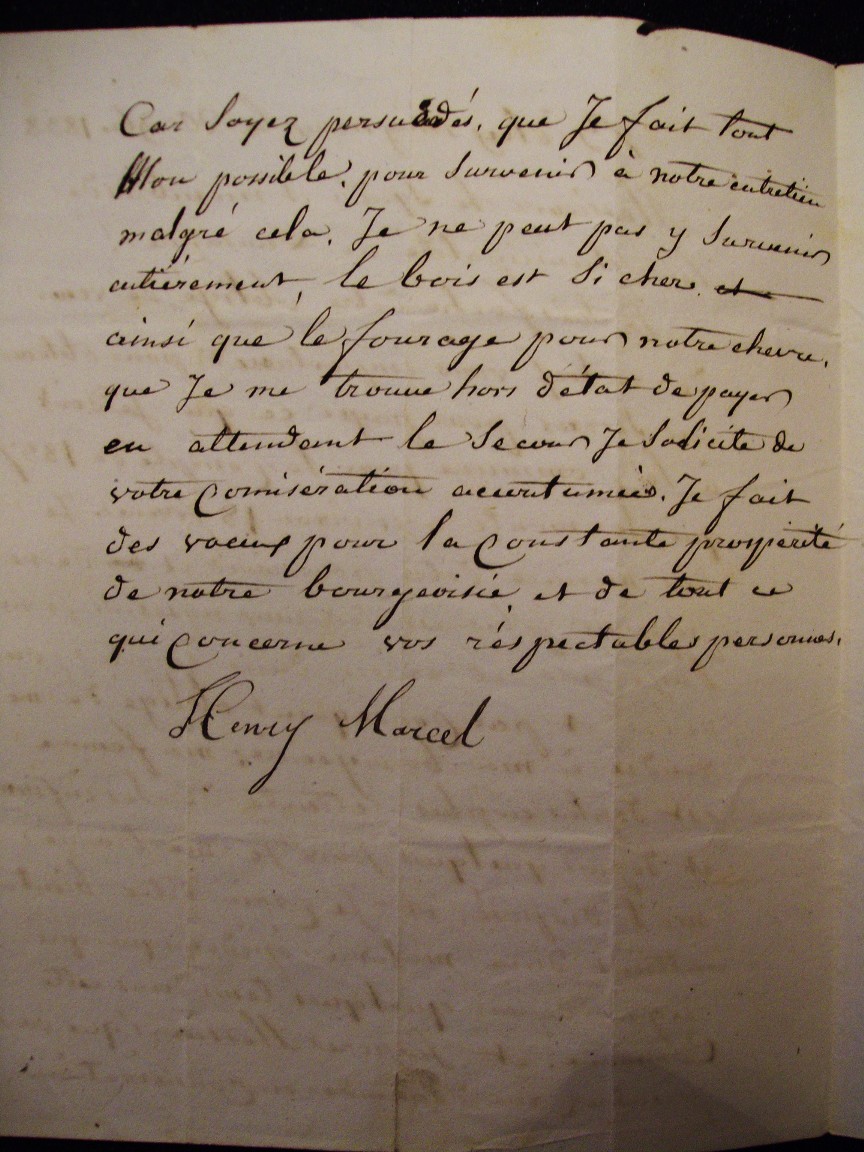 Car Soyez persuadés, que Je fait tout
Mon possible, pour Survenir à notre entretien
malgré cela, Je ne peut pas y Survenir
entiérement, le bois est Si cher et
ainsi que le fourage pour notre chevre,
que Je me trouve hors d'état de payer
en attendant le Secour Je Solicite de
votre Comisération accoutumée. Je fait
des voeux pour la Constante prospérité
de notre bourgeoisie, et de tout ce
qui Concerne vos réspectables personnes.
Henry Marcel